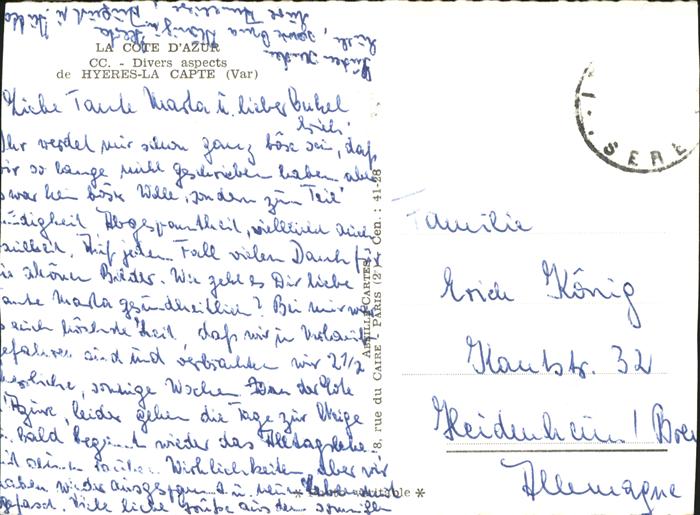 LA COTE D'AZUR
CC. - Divers aspects
de HYERES-LA CAPTE (Var)
Liebe Tante Marta u. lieber Onkel
Erich!
Ihr werdet mir schon ganz böse sein, daß
wir so lange nicht geschrieben haben aber
s war kein böser Wille, sondern zum Teil
Müdigkeit Abgespanntheit, vielleicht auch
Faulheit. Auf jeden Fall vielen Dank für
die schönen Bilder. Wie geht es Dir liebe
Tante Marta gesundheitlich? Bei mir war
s auch höchste Zeit, daß wir in Urlaub
gefahren sind und verbrachten wir 2 1/2
herrliche, sonnige Wochen an der Côte
d'Azure, leider gehen die Tage zur Neige
u. bald beginnt wieder das Alltagsleben
mit seinen Wirklichkeiten, aber wir
haben wieder ausgespannt u. neuen
gefasst. Viele liebe Grüße aus dem sonnigen
ABEILLE-CARTES
8, rue du CAIRE - PARIS (2e) Cen. : 41-28
SERE
Familie
Erich König
Kantstr. 32
Heidenheim / Bren
Allemagne